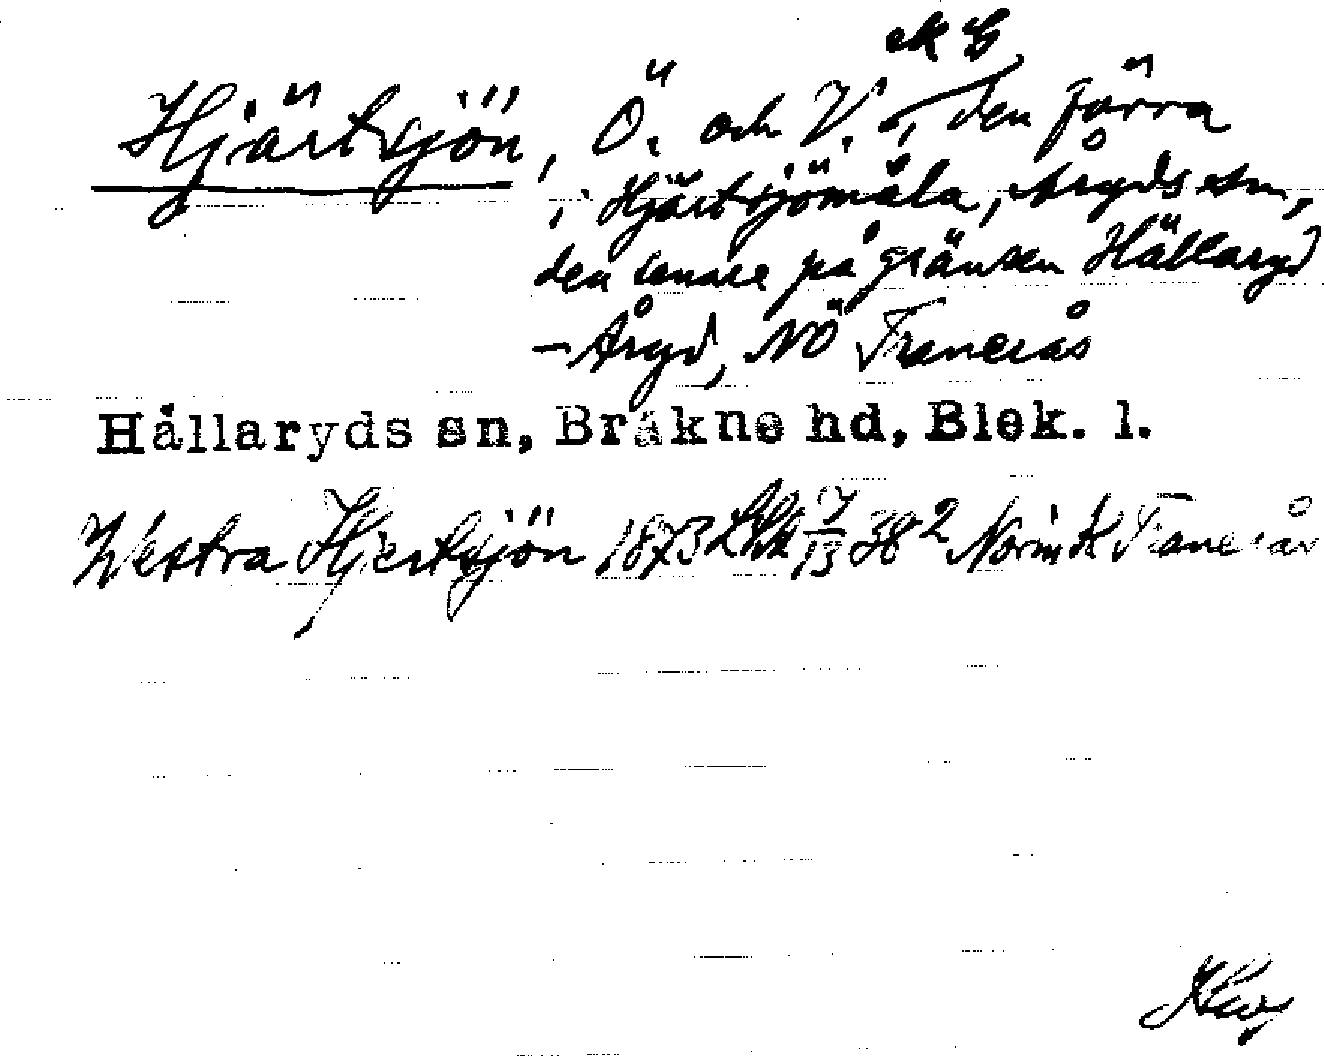 ek G
Hjärtsjön, Ö. och V., den förra
i Hjärtsjömåla, Åryds sn,
den senare på gränsen Hällaryd
– Åryd, NÖ Tranerås
Hällaryds sn, Bräkne hd, Blek. l.
Westra Hjertsjön 1873 7/13 38 2 Norin K Tranerås